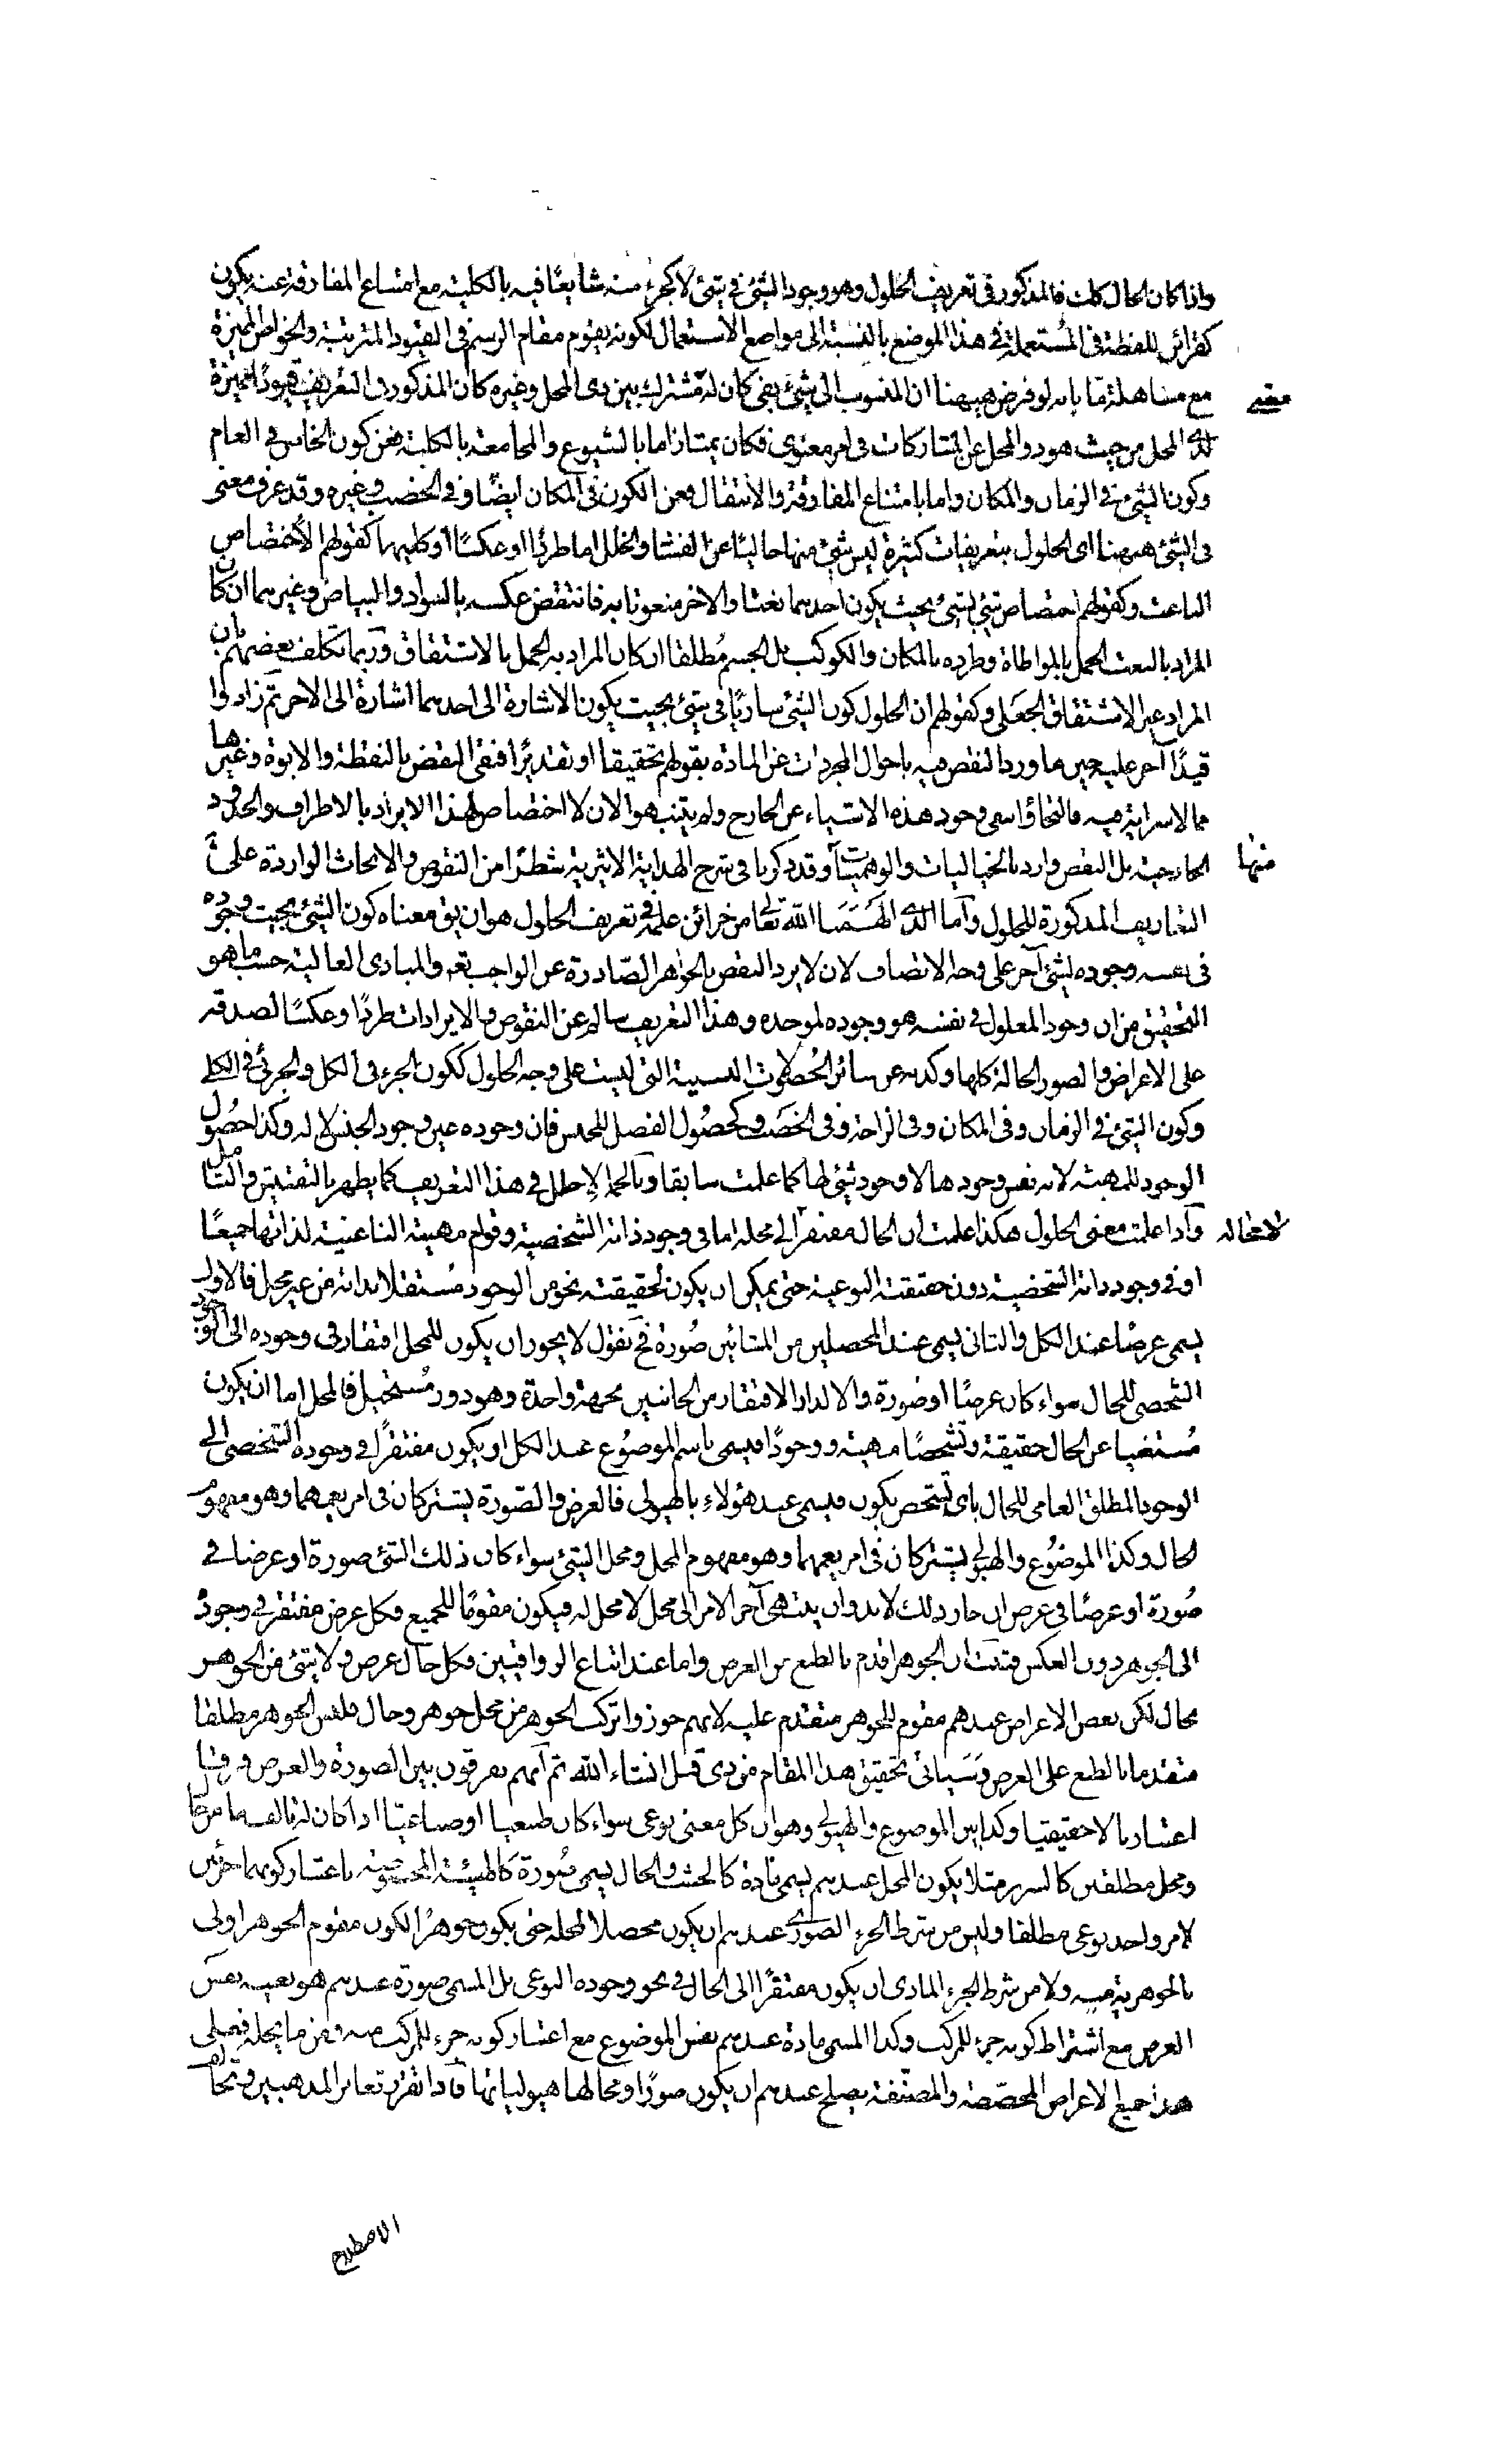 واذا كان الحال كذلك فالمذكور فى تعريف الحلول وهو وجود الشئ فى شئ لا كجزء منه شايعًا فيه بالكلية مع امتناع المفارقة عنه يكون
كقرائن للفظة فى المستعملة فى هذا الموضع بالنسبة الى مواضع الاستعمال لكونه يقوم مقام الرسم فى القيود المترتبة والخواص المميزة
مع مساهلة ما بانه لو فرض ههنا ان المنسوب الى شئ بفى كان له مشترك بين ذى المحل وغيره كان المذكور فى التعريف قيودًا مميزة
لذى المحل من حيث هو ذو المحل عن المتشاركات فى امر معنوى فكان يمتاز اما بالشيوع والمجامعة بالكلية فعن كون الخاص فى العام
وكون الشئ فى الزمان والمكان واما بامتناع المفارقة والانتقال فعن الكون فى المكان ايضًا وفى الخصب وغيره وقد عرف معنى
فى الشئ ههنا اى الحلول بتعريفات كثيرة ليس شئ منها خاليًا عن الفساد والخلل اما طردًا او عكسًا او كليهما كقولهم الاختصاص
الناعت وكقولهم اختصاص شئ بشئ بحيث يكون احدهما نعتا والاخر منعوتا به فانتقض عكسه بالسواد والبياض وغيرهما ان كان
المراد بالنعت الحمل بالمواطاة وطرده بالمكان والكوكب بل الجسم مطلقا ان كان المراد به الحمل بالاشتقاق وربما تكلف بعضهم بان
المراد غير الاشتقاق الجعلى وكقولهم ان الحلول كون الشئ ساريًا فى شئ بحيث يكون الاشارة الى احدهما اشارة الى الاخر ثم زادوا
قيدًا آخر عليه حين ما ورد النقض فيه باحوال المجردات عن المادة بقولهم تحقيقا او تقديرًا فبقى النقض بالنقطة والابوة وغيرها
مما لا سراية فيه فالتجأوا الى نفى وجود هذه الاشياء عن الخارج ولم يتنبهوا لان لا اختصاص لهذا الايراد بالاطراف والحدود
الخارجية بل النقض وارد بالخياليات والوهميات وقد ذكرنا فى شرح الهداية الاثيرية شطرًا من النقوض والابحاث الواردة على
التعاريف المذكورة للحلول وأما الذى الهمنا الله تعالى من خزائن علمه فى تعريف الحلول هو ان يق معناه كون الشئ بحيث وجوده
فى نفسه وجوده لشئ آخر على وجه الاتصاف لان لا يرد النقض بالجواهر الصادرة عن الواجب تعم والمبادى العالية حسب ما هو
التحقيق من ان وجود المعلول فى نفسه هو وجوده لموجده وهذا التعريف سالم عن النقوض والايرادات طردًا وعكسًا لصدقه
على الاعراض والصور الحالة كلها وكذبه عن سائر الحصولات النسبية التى ليست على وجه الحلول ككون الجزء فى الكل والجزئى فى الكلى
وكون الشئ فى الزمان وفى المكان وفى الراحة وفى الخصب وكحصول الفصل للجنس فان وجوده عين وجود الجنس لا له وكذا حصول
الوجود للمهية لانه نفس وجودها لا وجود شئ لها كما علمت سابقا وبالجملة لا خلل فى هذا التعريف كما يظهر بالتفتيش والتأمل
وأذا علمت معنى الحلول هكذا علمت ان الحال مفتقر الى محله اما فى وجود ذاته الشخصية وقوام مهيته الناعتية لذاتها جميعًا
او فى وجود ذاته الشخصية دون حقيقته النوعية حتى يمكن ان يكون لحقيقته نحو من الوجود مستقلا بذاته من غير محل فالاول
يسمى عرضًا عند الكل والثانى يسمى عند المحصلين من المشائين صورة فح نقول لا يجوز ان يكون للمحل افتقار فى وجوده الى الوجود
الشخصى للحال سواء كان عرضًا او صورة والا لدار الافتقار من الجانبين بجهة واحدة وهو دور مستحيل فالمحل اما ان يكون
مستغنيا عن الحال حقيقة وتشخصًا مهية ووجودًا فيسمى باسم الموضوع عند الكل او يكون مفتقرًا فى وجوده الشخصى الى
الوجود المطلق العامى للحال باى تشخص يكون فيسمى عند هؤلاء بالهيولى فالعرض والصورة يشتركان فى امر يعمهما وهو مفهوم
الحال وكذا الموضوع والهيولى يشتركان فى امر يعمهما وهو مفهوم المحل ومحل الشئ سواء كان ذلك الشئ صورة او عرضا فى
صورة او عرضًا فى عرض ان جاز ذلك لا بد وان ينتهى آخر الامر الى محل لا محل له فيكون مقومًا للجميع فكل عرض مفتقر فى وجوده
الى الجوهر دون العكس فثبت ان الجوهر اقدم بالطبع من العرض واما عند اتباع الرواقيين فكل حال عرض ولا شئ من الجوهر
بحال لكن بعض الاعراض عندهم مقوم للجوهر متقدم عليه لانهم جوزوا تركب الجوهر من محل جوهر وحال فليس الجوهر مطلقا
متقدما بالطبع على العرض وسيأتى تحقيق هذا المقام من ذى قبل انشاء الله ثم انهم يفرقون بين الصورة والعرض فرقا
اعتباريا لا حقيقيا وكذا بين الموضوع والهيولى وهو ان كل معنى نوعى سواء كان طبيعيا او صناعيا اذا كان له تالف ما من حال
ومحل مطلقين كالسرير مثلا يكون المحل عندهم يسمى مادة كالخشب والحال يسمى صورة كالهيئة المخصوصة باعتبار كونهما جزئين
لامر واحد نوعى مطلقا وليس من شرط الجزء الصورى عندهم ان يكون محصلا لمحله حتى يكون جوهرًا لكون مقوم الجوهر اولى
بالجوهرية منه ولا من شرط الجزء المادى ان يكون مفتقرًا الى الحال فى نحو وجوده النوعى بل المسمى صورة عندهم هو بعينه نفس
العرض مع اشتراط كونه جزء للمركب وكذا المسمى مادة عندهم نفس الموضوع مع اعتبار كونه جزء للمركب منه ومن ما يحله فعلى
هذا جميع الاعراض المخصصة والمصنفة يصلح عندهم ان يكون صورًا ومحالها هيولياتها فأذا تقرر تغاير المذهبين وتخالف
منها
لا محالة
الاصطلاح